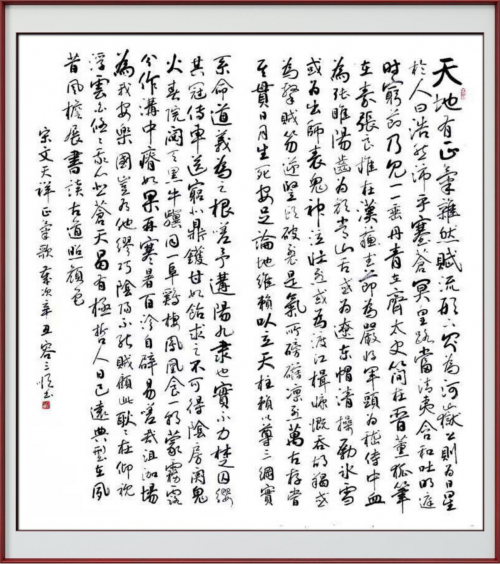 天地有正氣雜然賦流形下則為河嶽上則為日星
於人曰浩然沛乎塞蒼冥皇路當清夷含和吐明庭
時窮節乃見一一垂丹青在齊太史簡在晉董狐筆
在秦張良椎在漢蘇武節為嚴將軍頭為嵇侍中血
為張睢陽齒為顏常山舌或為遼東帽清操厲冰雪
或為出師表鬼神泣壯烈或為渡江楫慷慨吞胡羯或
為擊賊笏逆豎頭破裂是氣所磅礴凜烈萬古存當
其貫日月生死安足論地維賴以立天柱賴以尊三綱實
系命道義為之根嗟予遘陽九隸也實不力楚囚纓
其冠傳車送窮北鼎鑊甘如飴求之不可得陰房闃鬼
火春院閟天黑牛驥同一阜雞棲鳳凰食一朝蒙霧露
分作溝中瘠如果再寒暑百沴自辟易嗟哉沮洳場
為我安樂國豈有他繆巧陰陽不能賊顧此耿耿在仰視
浮雲白悠悠我心悲蒼天曷有極哲人日已遠典型在夙
昔風檐展書讀古道照顏色
宋文天祥正氣歌歲次辛丑